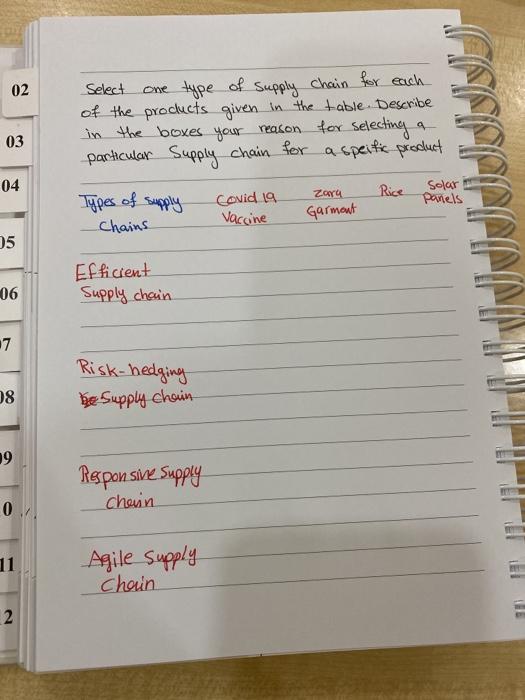 02
03
04
05
06
07
08
09
0
11
2
Select one type of Supply Chain for each
of the products given in the table. Describe
in the boxes your reason for selecting a
particular Supply chain for a speific product
Types of supply Covid 19 Zara Rice Solar
Chains Vaccine Garment Panels
Efficient
Supply chain
Risk-hedging
Supply Chain
Responsive Supply
Chain
Agile Supply
Chain